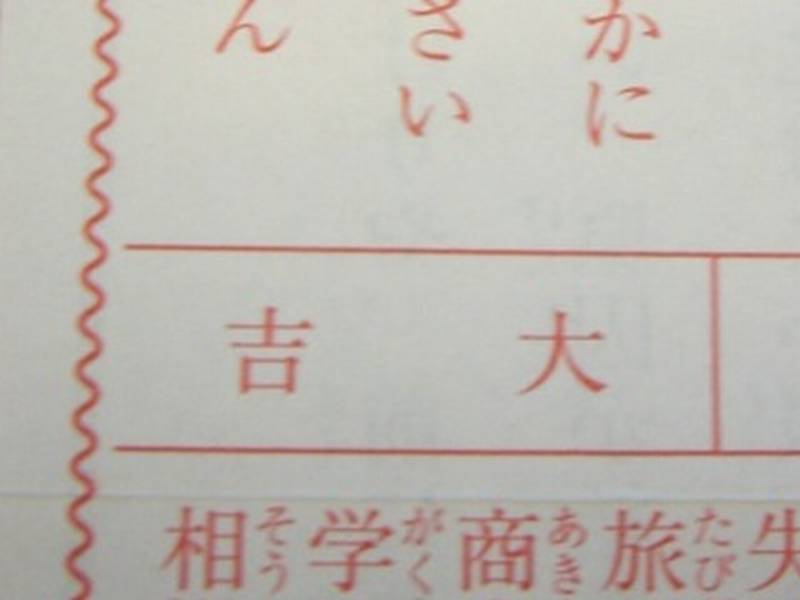 かに
さい
ん
大吉
失
旅たび
商あき
学がく
相そう